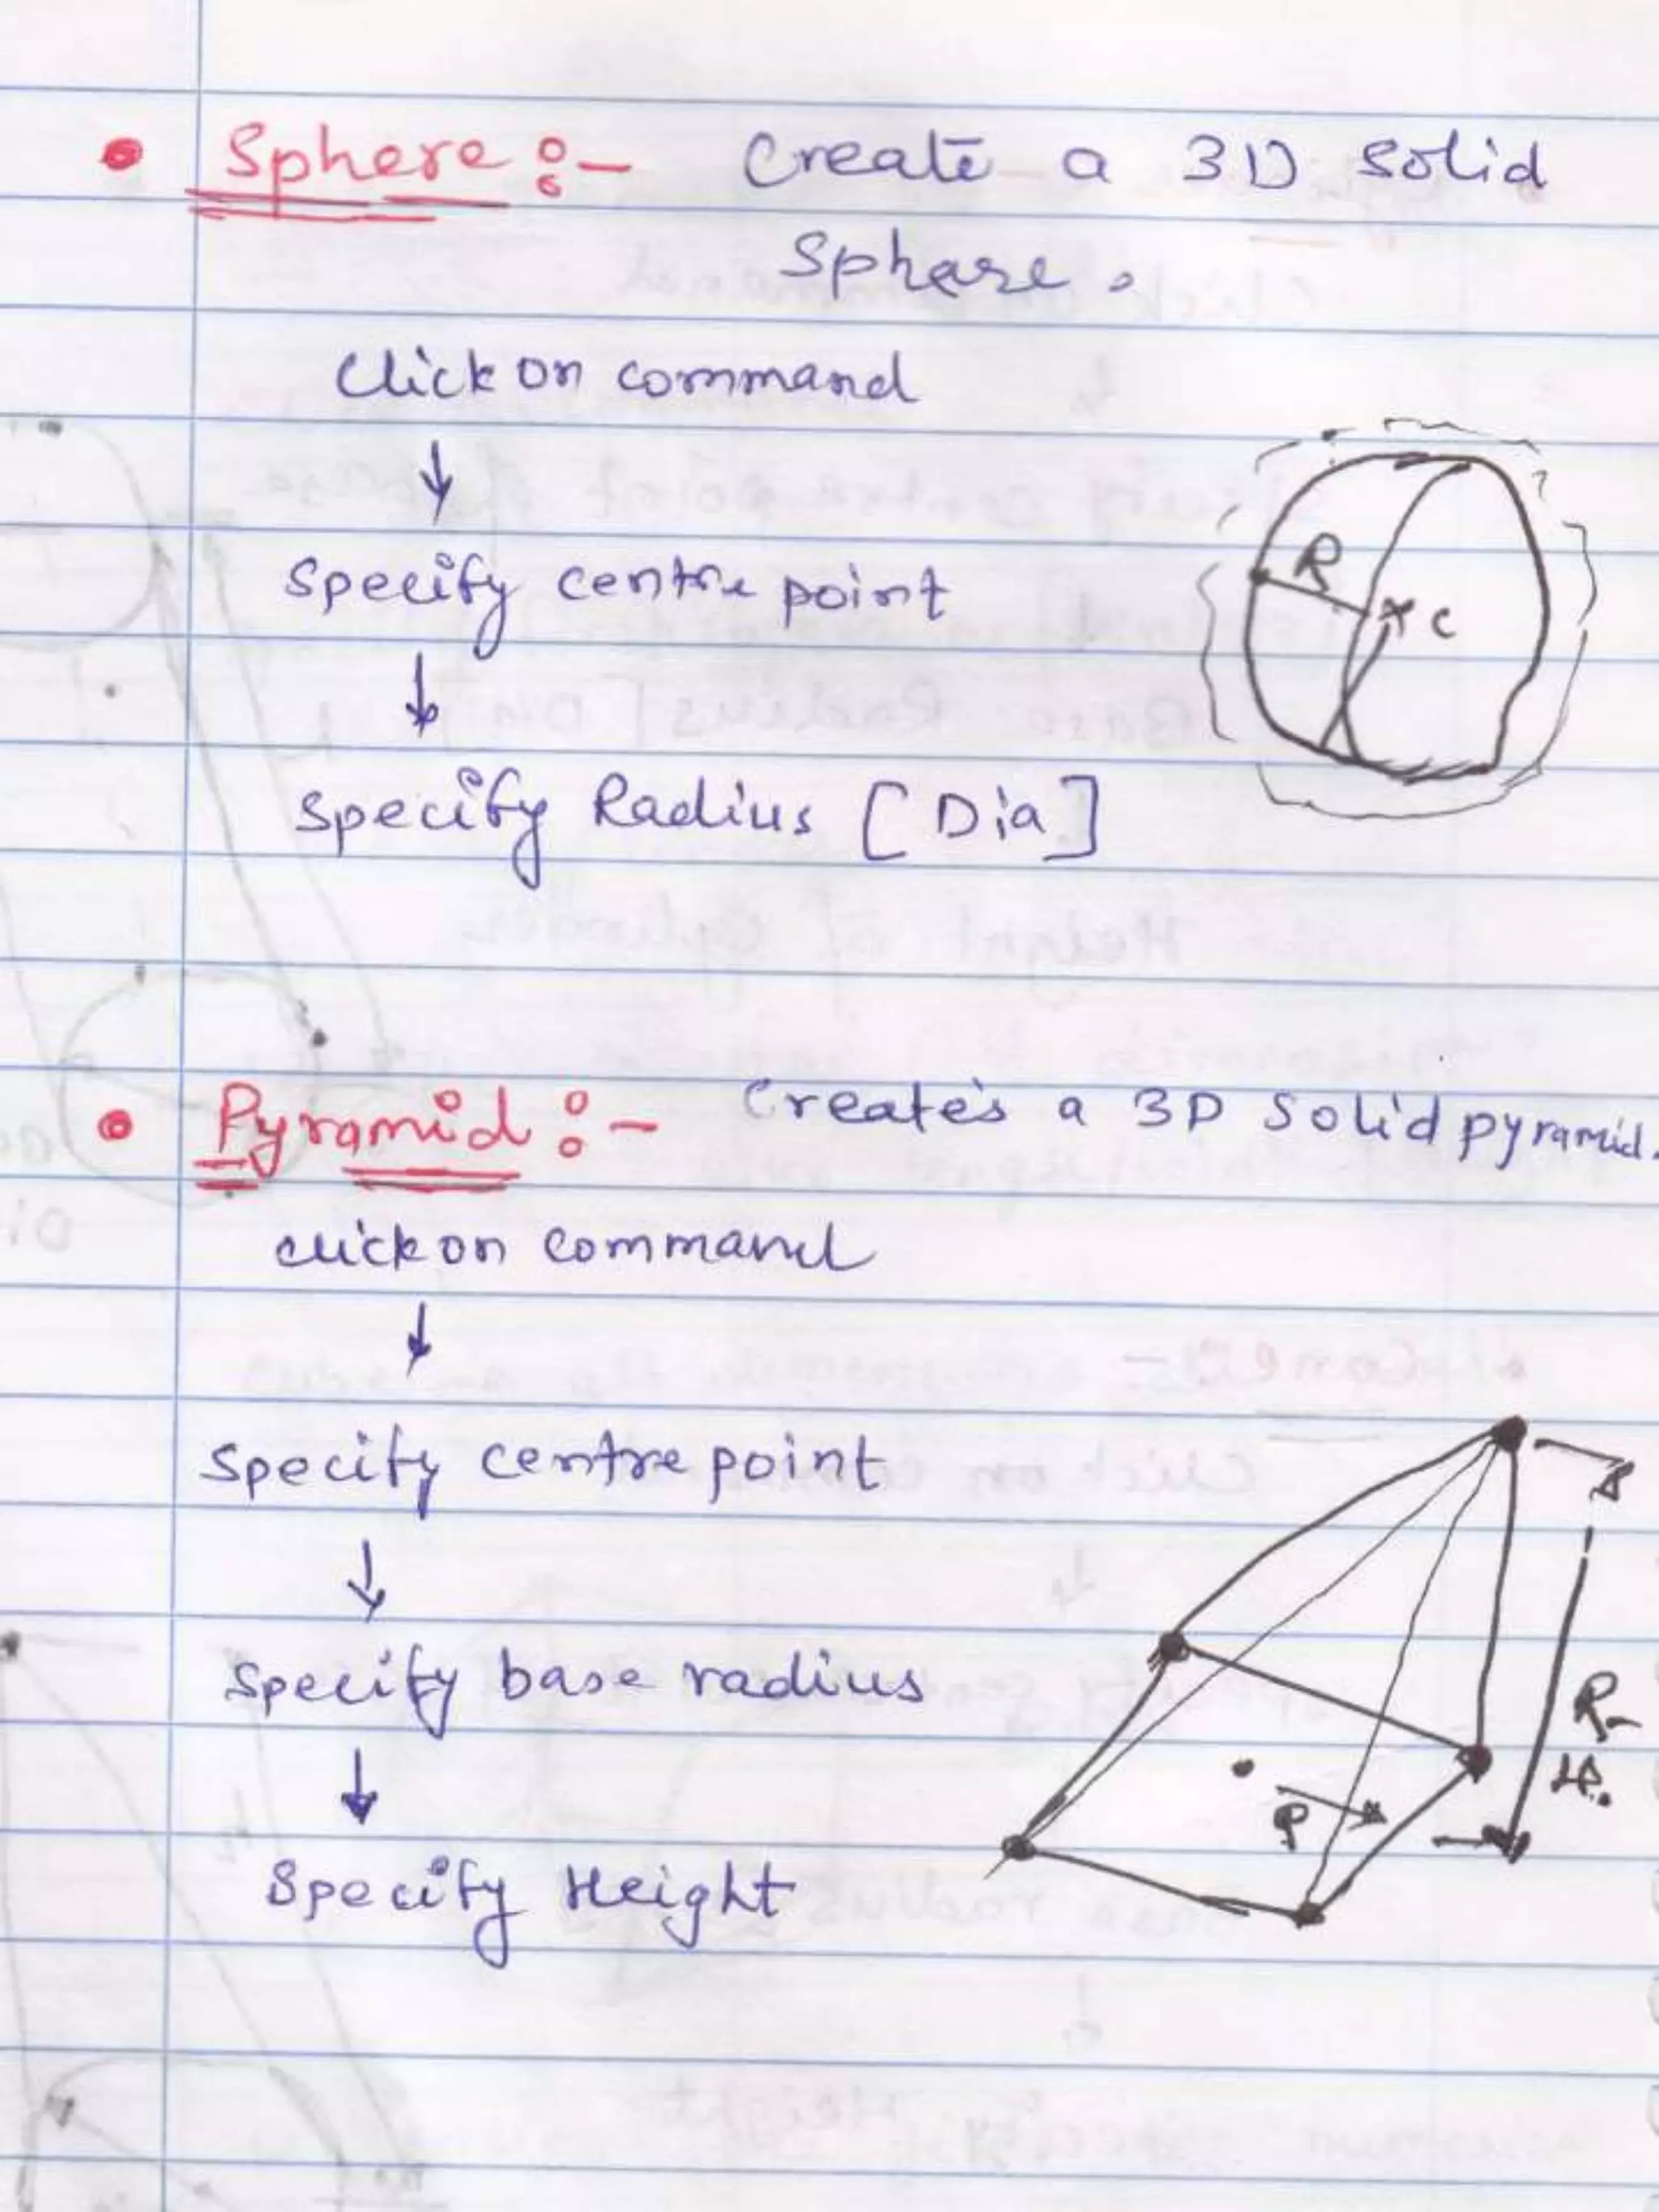 • Sphere :- Create a 3D Solid
Sphare.
Click on command
↓
Specify centre point
↓
Specify Radius [Dia]
R
x c
• Pyramid :- Creates a 3D Solid pyramid.
click on command
↓
Specify centre point
↓
Specify base radius
↓
Specify Height